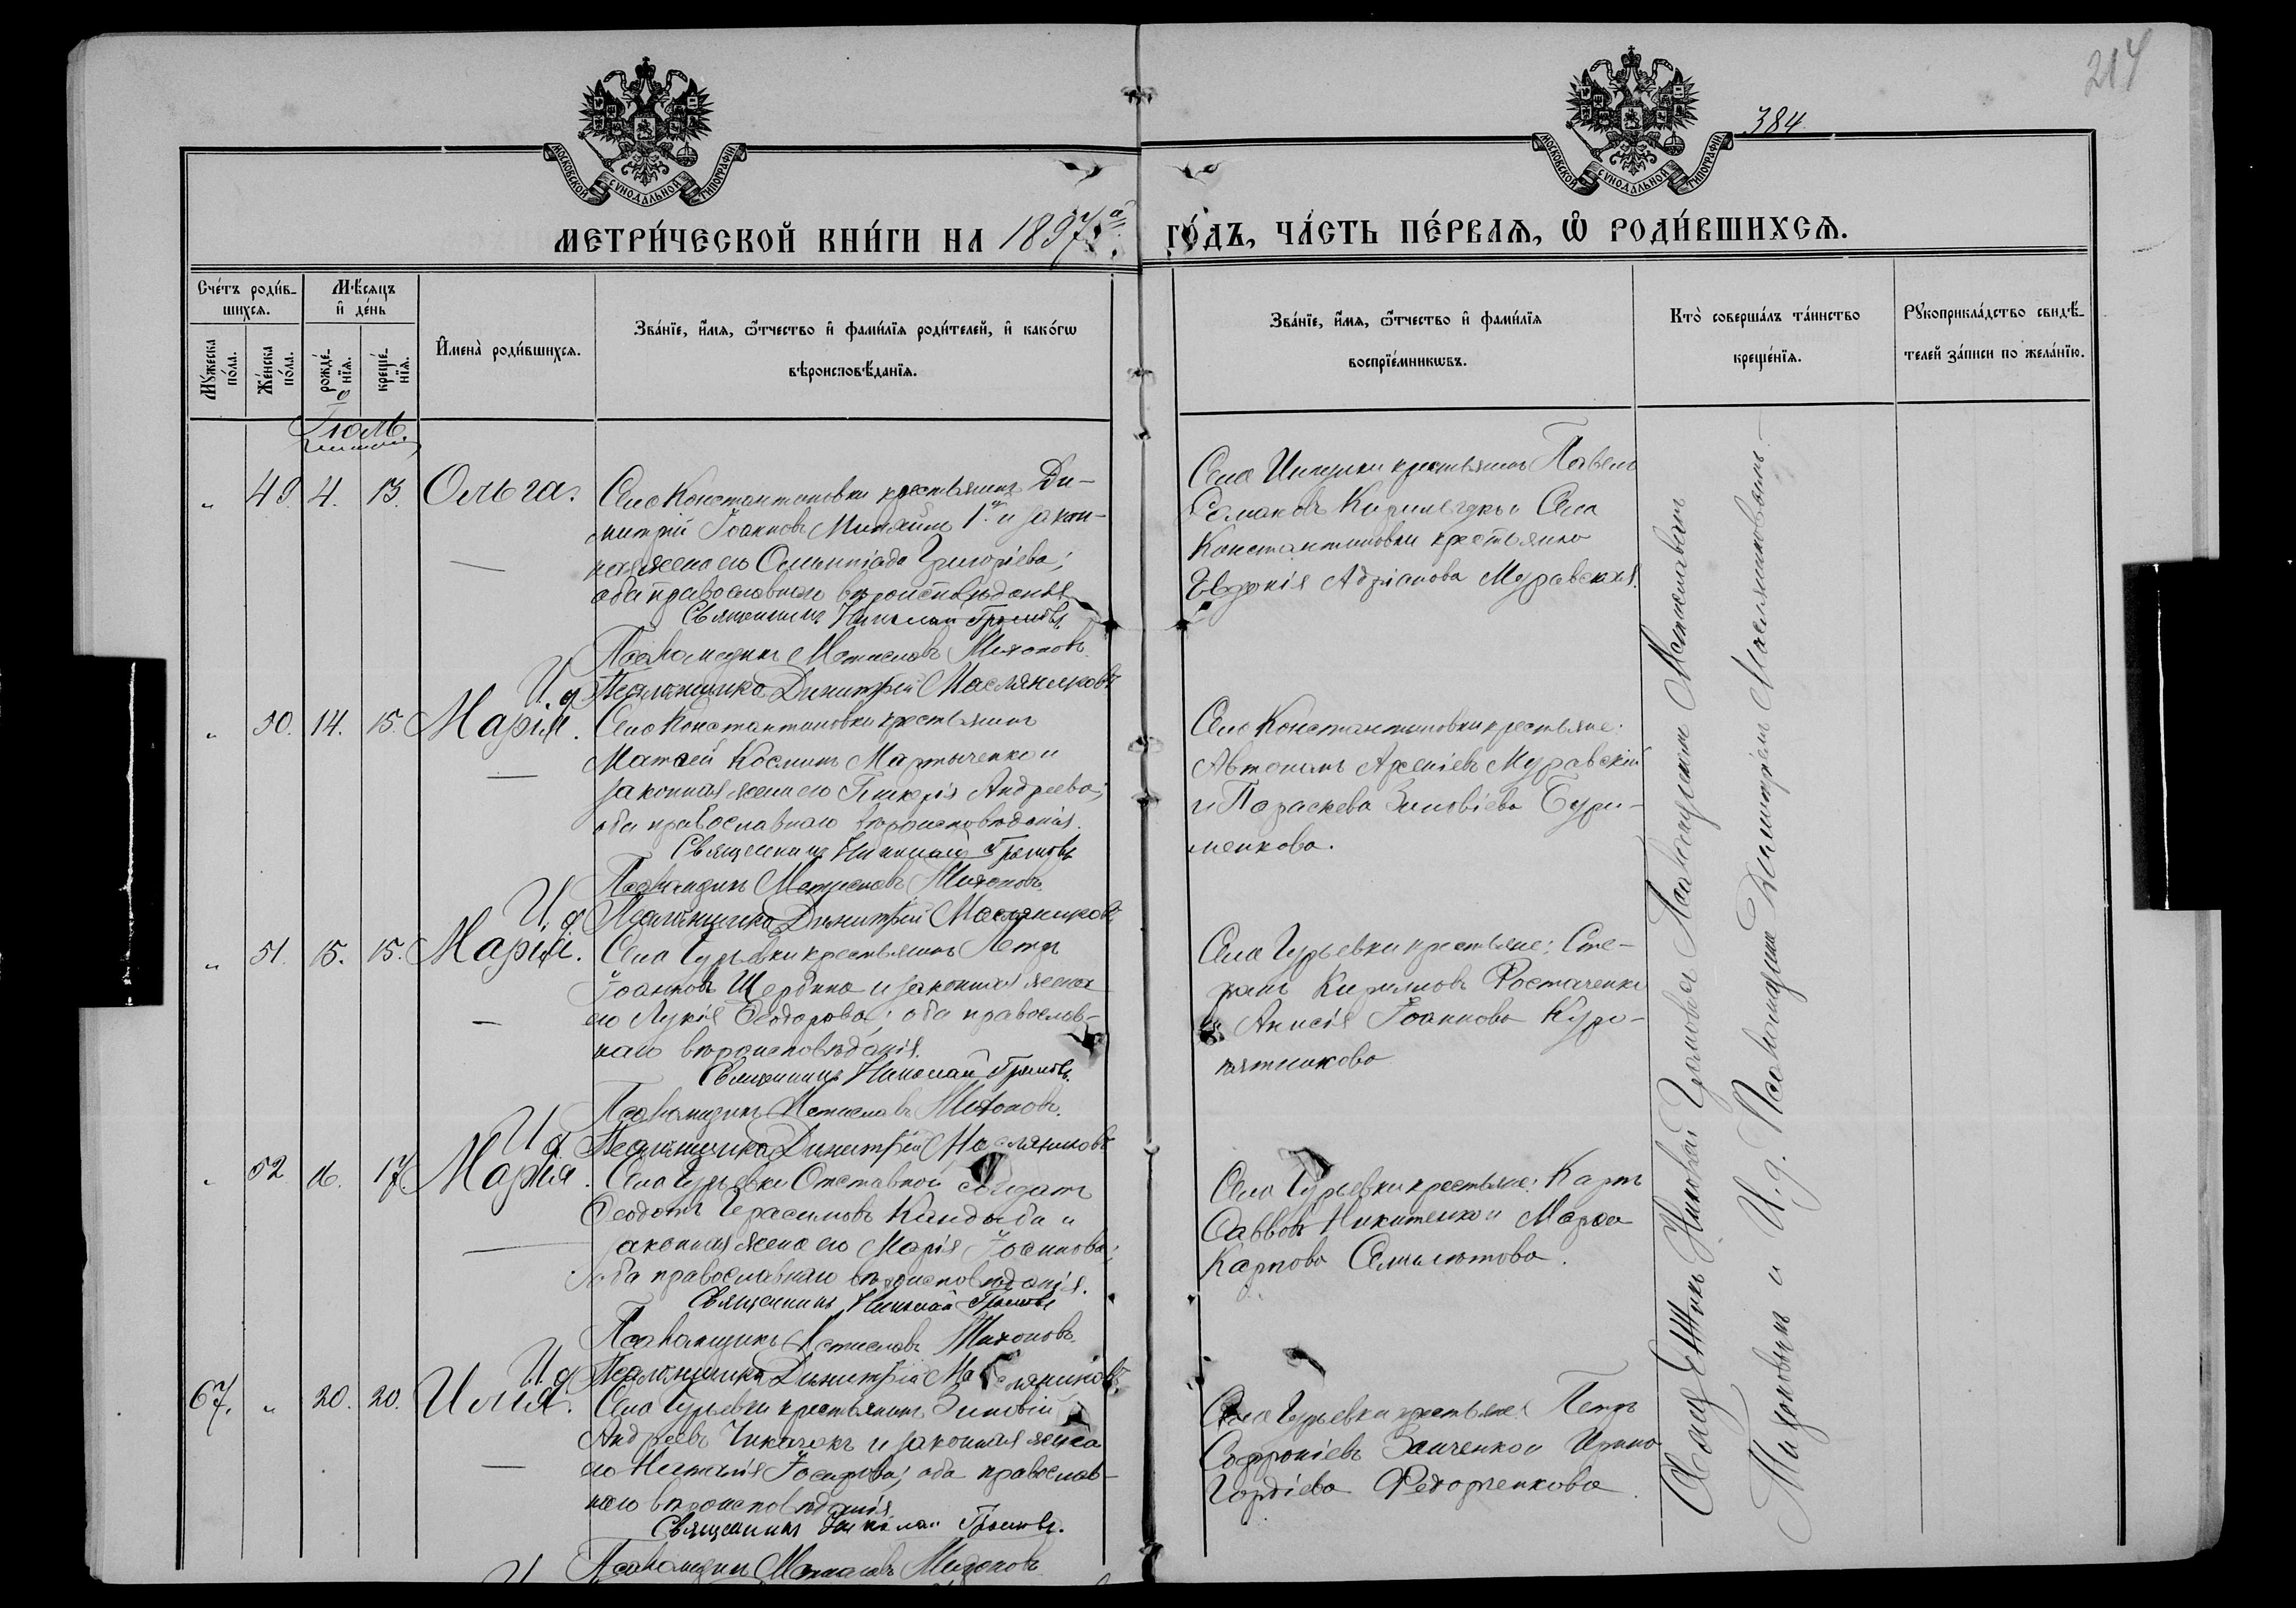 214
384
МОСКОВСКОЙ СѴНОДАЛЬНОЙ ТИПОГРАФІИ
МОСКОВСКОЙ СѴНОДАЛЬНОЙ ТИПОГРАФІИ
МЕТРИ́ЧЕСКОЙ КНИ́ГИ НА 1897й. ГО́ДЪ, ЧА́СТЬ ПЕ́РВАѦ, Ѡ҆ РОДИ́ВШИХСѦ.
Сче́тъ роди́в-
шихсѧ.
Мꙋ́жеска
по́ла.
Же́нска
по́ла.
Мѣ́сѧцъ
и҆ де́нь
рожде́-
нїѧ.
креще́-
нїѧ.
И҆мена̀ роди́вшихсѧ.
Зва́нїе, и҆́мѧ, ѻ҆́тчество и҆ фами́лїѧ роди́телей, и҆ како́гѡ
вѣроисповѣ́данїѧ.
Зва́нїе, и҆́мѧ, ѻ҆́тчество и҆ фами́лїѧ
воспрїе́мникѡвъ.
Кто̀ соверша́лъ та́инство
креще́нїѧ.
Рꙋкоприкла́дство свидѣ́-
телей за́писи по жела́нїю.
Іюль
„ 49. 4. 13. Ольга.
Села Константиновки крестьянинъ Ди-
митрій Іоанновъ Михайли 1й и закон-
ная жена его Олимпіада Григоріева;
оба православнаго вѣроисповѣданія
Священникъ Николай Громовъ
Псаломщикъ Мстиславъ Тихоновъ
И. д. Псаломщика Димитрій Масляниковъ
Села крестьянинъ Павелъ
Романовъ и Села
Константиновки крестьянка
Евдокія Адріанова Муравская.
„ 50. 14. 15. Марія.
Села Константиновки крестьянинъ
Матѳей Косминъ Мартыченко и
законная жена его Гликерія Андреева;
оба православнаго вѣроисповѣданія.
Священникъ Николай Громовъ
Псаломщикъ Мстиславъ Тихоновъ
И. д. Псаломщика Димитрій Масляниковъ
Села Константиновки крестьяне:
Автономъ Арсеніевъ Муравскій
и Параскева Зиновіева Бури-
менкова.
„ 51. 15. 15. Марія.
Села Гурьевки крестьянинъ Петръ
Іоанновъ Щербина и законная жена
его Лукія Ѳеодорова; оба православ-
наго вѣроисповѣданія.
Священникъ Николай Громовъ.
Псаломщикъ Мстиславъ Тихоновъ.
И. д. Псаломщика Димитрій Масляниковъ
Села Гурьевки крестьяне: Сте-
фанъ Кириловъ Ростаченко
и Анисія Іоаннова Куро-
пятникова
„ 52 16. 17. Марія.
Села Гурьевки Отставной солдатъ
Ѳеодотъ Герасимовъ Кандыба и
законная жена его Марія Іоаннова;
оба православнаго вѣроисповѣданія.
Священникъ Николай Громовъ
Псаломщикъ Мстиславъ Тихоновъ
И. д. Псаломщика Димитрій Масляниковъ
Села Гурьевки крестьяне: Карпъ
Саввовъ Никитенко и Марѳа
Карпова
67. „ 20. 20. Илія.
Села Гурьевки крестьянинъ Зиновій
Андреевъ Чикачокъ и законная жена
его Наталія Іосифова; оба православ-
наго вѣроисповѣданія
Священникъ Николай Громовъ.
Псаломщикъ Мстиславъ Тихоновъ
Села Гурьевки крестьяне: Петръ
Софроніевъ Заиченко и Ирина
Гордіева Федорченкова
Священникъ Николай Громовъ съ Псаломщикомъ Мстиславомъ
Тихоновымъ и И. д. Псаломщика Димитріемъ Масляниковымъ